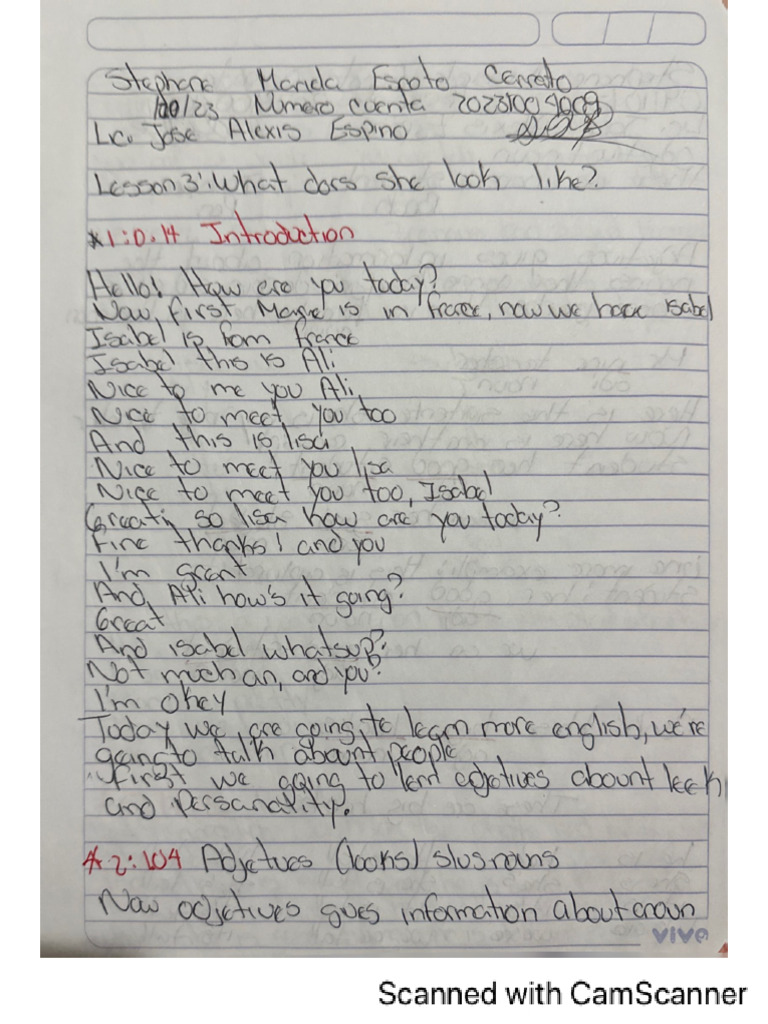 Stephanie Mariela Espoto Cerrato
/20/23 Número cuenta
Lic. Jose Alexis Espino
Lesson 3: What does she look like?
*1:0.14 Introduction
Hello! How are you today?
Now, first Marie is in france, now we have isabel
Isabel is from france
Isabel this is Ali
Nice to me you Ali,
Nice to meet you too
And this is lisa
Nice to meet you lisa
Nice to meet you too, Isabel
Great, so lisa how are you today?
Fine thanks! and you
I'm great
And, Ali how's it going?
Great
And isabel whatsup?
Not much an, and you?
I'm okey
Today we are going to learn more english, we're
going to talk abount people
first we going to lern adjetives abount leek
and personality.
*2:104 Adjetives (looks) slus nouns
Now adjetives gives information about a noun
vivo
Scanned with CamScanner